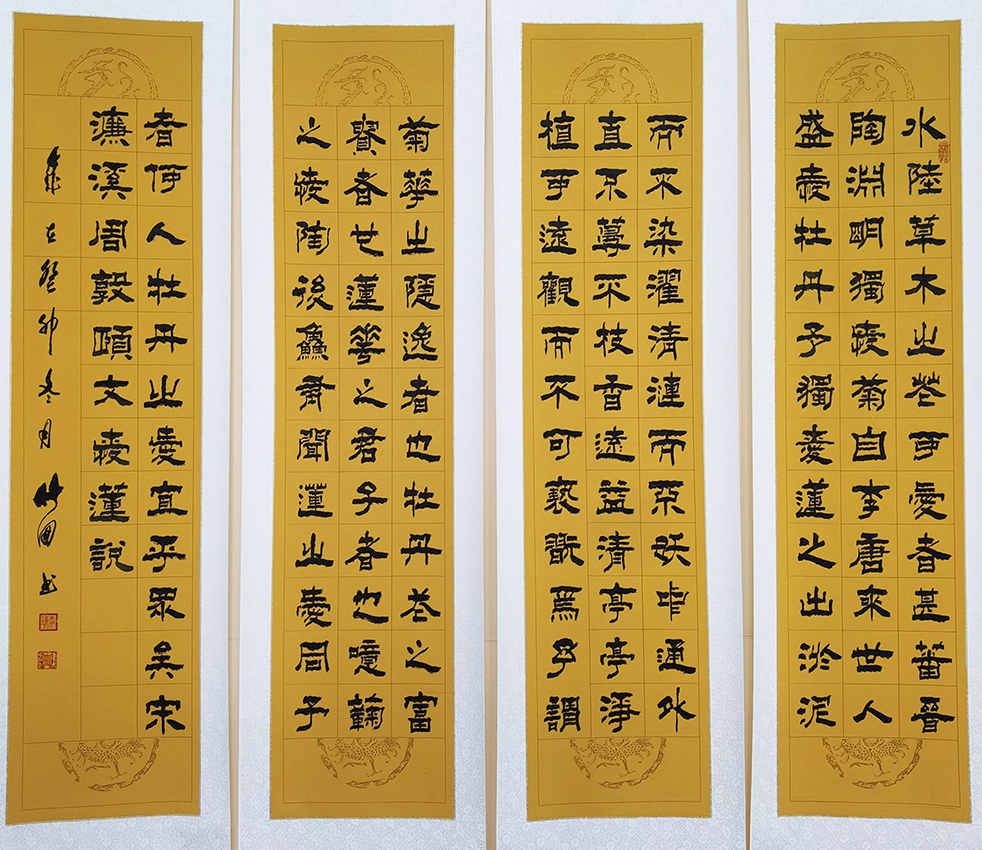 水陸草木之花可愛者甚蕃晉
陶淵明獨愛菊自李唐來世人
盛愛牡丹予獨愛蓮之出淤泥
而不染濯清漣而不妖中通外
直不蔓不枝香遠益清亭亭淨
植可遠觀而不可褻翫焉予謂
菊華之隱逸者也牡丹花之富
貴者也蓮華之君子者也噫蘜
之愛陶後鱻有聞蓮之愛同予
者何人牡丹之愛宜乎眾矣宋
濂溪周敦頤文愛蓮說
歲在癸卯冬月竹園书